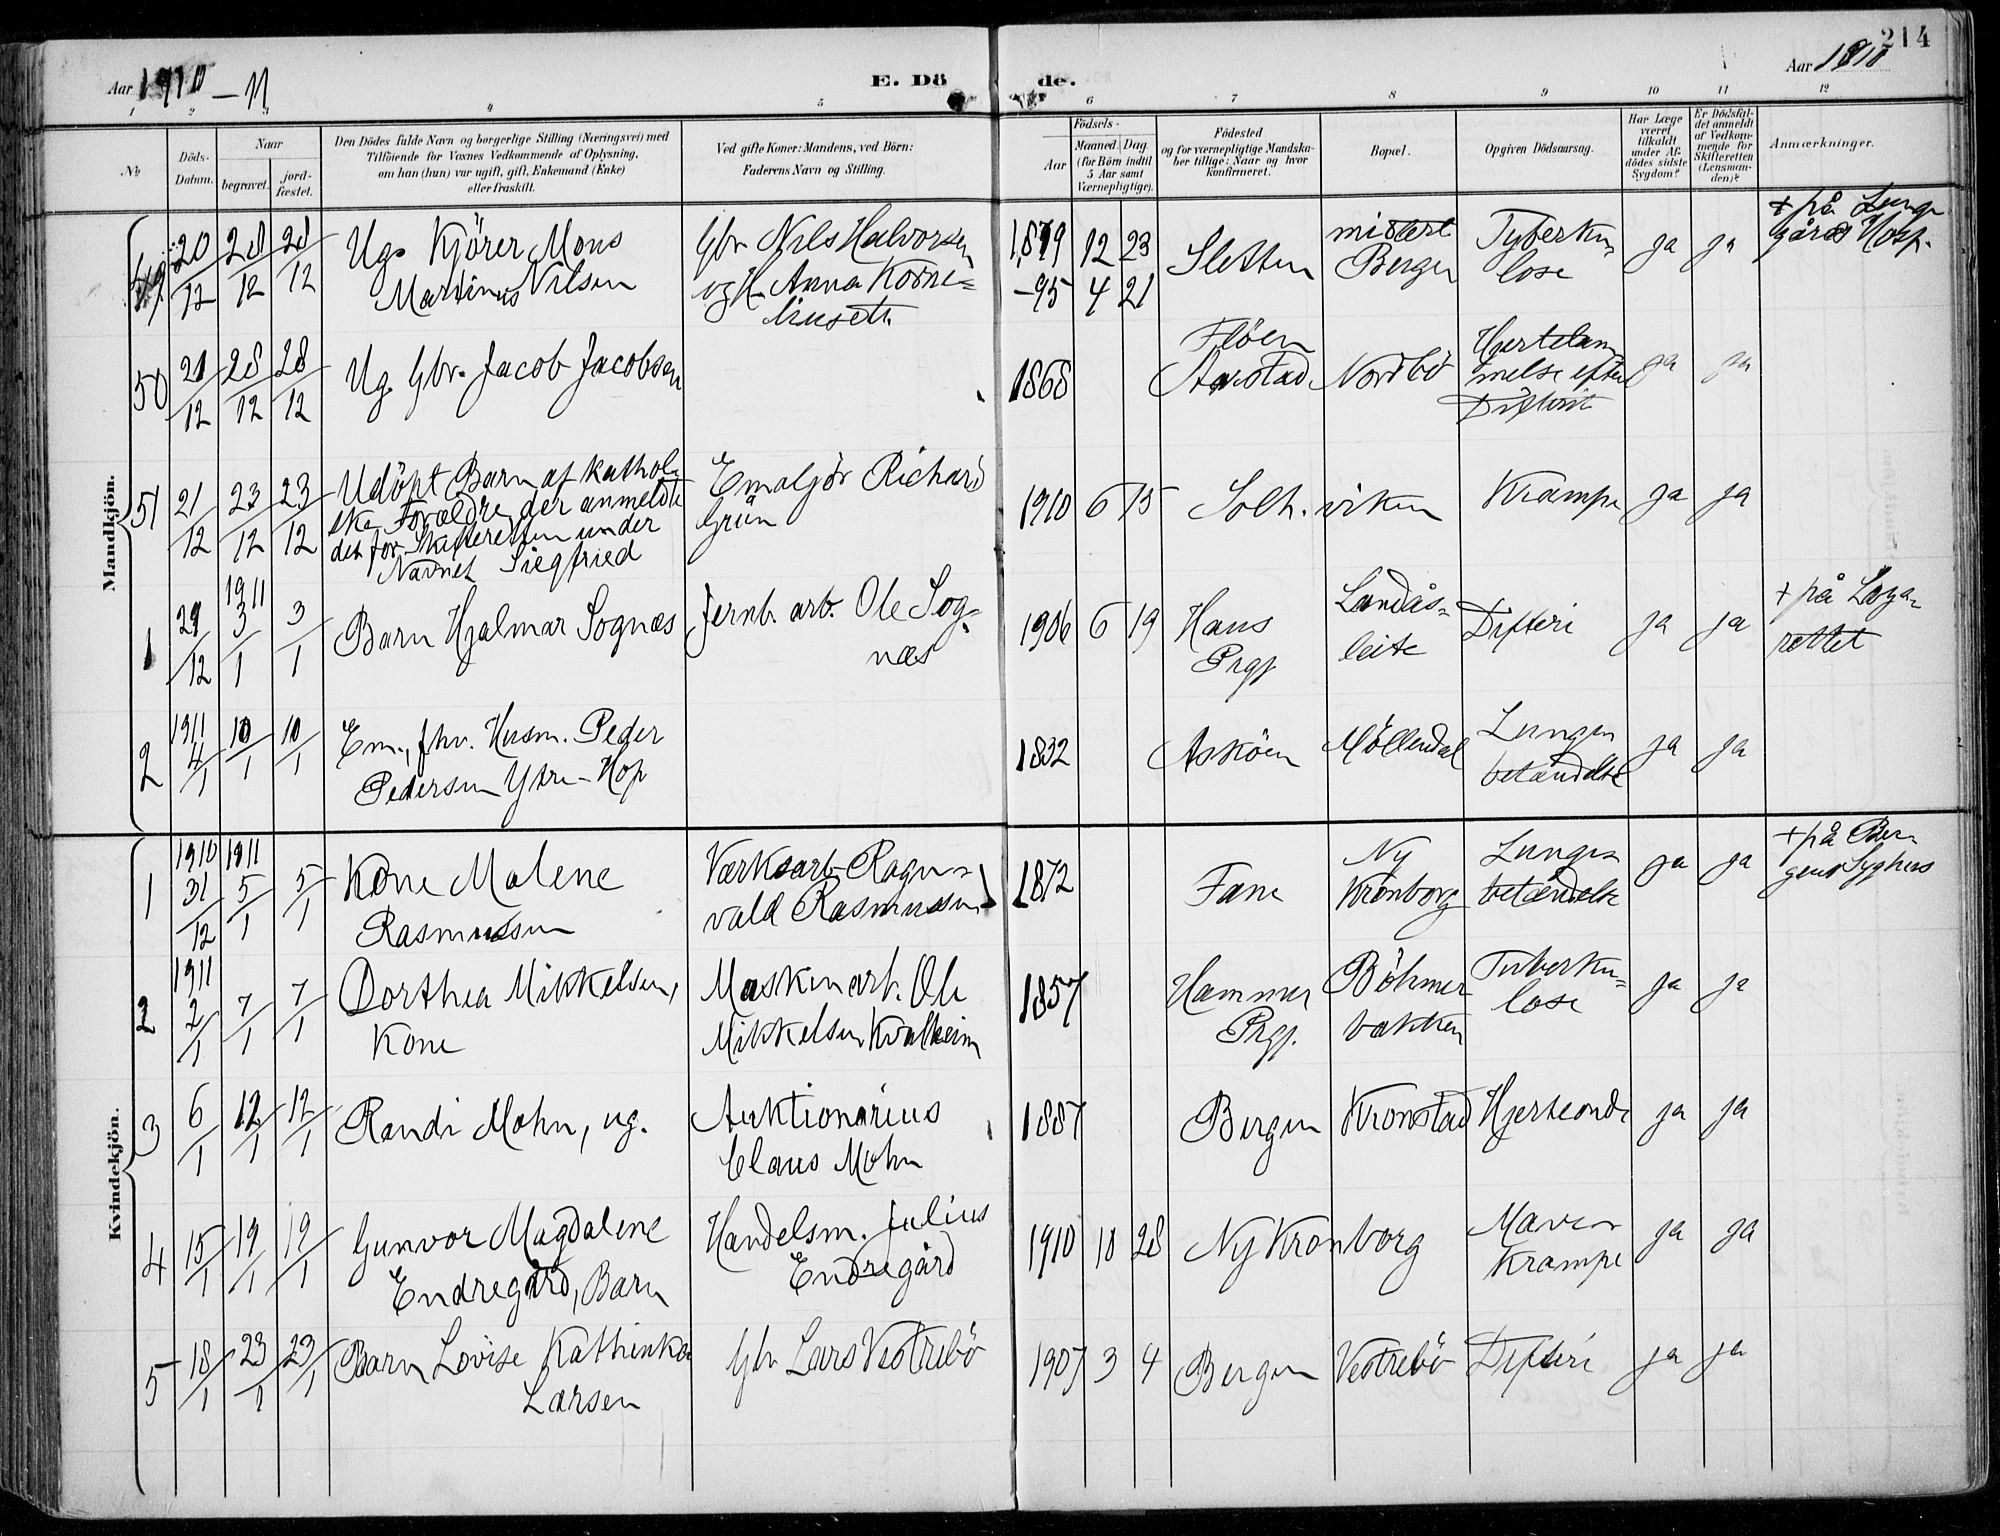 214
Aar 1910-11
E. Döde.
Aar 1910
1 2 3 4 5 6 7 8 9 10 11 12
No
Döds-Datum.
Naar
begravet.
jord-fæstet.
Den Dödes fulde Navn og borgerlige Stilling (Næringsvei) med
Tilföiende for Voxnes Vedkommende af Oplysning,
om han (hun) var ugift, gift, Enkemand (Enke)
eller fraskilt.
Ved gifte Koner: Mandens, ved Börn:
Faderens Navn og Stilling.
Födsels-
Aar
Maaned. Dag
(for Börn indtil
5 Aar samt
Værnepligtige).
Födested
og for værnepligtige Mandska-
ber tillige: Naar og hvor
konfirmeret.
Bopæl.
Opgiven Dödsaarsag.
Har Læge
været
tilkaldt
under Af-
dödes sidste
Sygdom?
Er Dödsfal-
det anmeldt
af Vedkom-
mende for
Skifteretten
(Lensman-
den)?
Anmærkninger.
Mandkjön.
49 20/12 28/12 28/12 Ug. Kjörer Mons
Martinus Nilsen
Gbr. Nils Halvorsen
og H. Anna Korne-
liusdtr.
1879 12 23
-95 4 21
Sletten
midlert.
Bergen
Tyberku-
lose
ja ja
+ på Lunge-
gårds Hosp.
50 21/12 28/12 28/12 Ug. Gbr. Jacob Jacobsen
1868
Flöen
Årstad
Nordbö
Hjertelam-
melse efter
Difterit
ja ja
51 21/12 23/12 23/12 Udöpt Barn af kathol-
ske Forældre, der anmeldte
det for Skifteretten under
Navnet Siegfried
Emaljör Richard
Grün
1910 6 15
Solh. viken
Krampe
ja ja
1 29/12 1911 3/1 3/1 Barn Hjalmar Sognæs
Jernb. arb. Ole Sog-
næs
1906 6 19
Haus
Prgj.
Landås-
leite
Difteri
ja ja
+ på Laza-
rettet
2 1911 4/1 10/1 10/1 Em., fhv. Husm. Peder
Pedersen Ytre-Hop
1832
Asköen
Möllendal
Lunge-
betændelse
ja ja
Kvindekjön.
1 1910 31/12 1911 5/1 5/1 Kone Malene
Rasmussen
Værksarb. Ragn-
vald Rasmussen
1872
Fane
Ny
Kronborg
Lunge-
betændelse
ja ja
+ på Ber-
gens Syghus
2 1911 2/1 7/1 7/1 Dorthea Mikkelsen,
Kone
Maskinarb. Ole
Mikkelsen Kvalheim
1857
Hammer
Prgj.
Böhmer-
bakken
Tuberku-
lose
ja ja
3 6/1 12/1 12/1 Randi Mohn, ug.
Auktionarius
Claus Mohn
1887
Bergen
Kronstad
Hjerteonde
ja ja
4 15/1 19/1 19/1 Gunvor Magdalene
Endregård, Barn
Handelsm. Julius
Endregård
1910 10 28
Ny Kronborg
Mave-
krampe
ja ja
5 18/1 23/1 23/1 Barn Lovise Kathinka
Larsen
Gbr Lars Vestrebö
1907 3 4
Bergen
Vestrebö
Difteri
ja ja